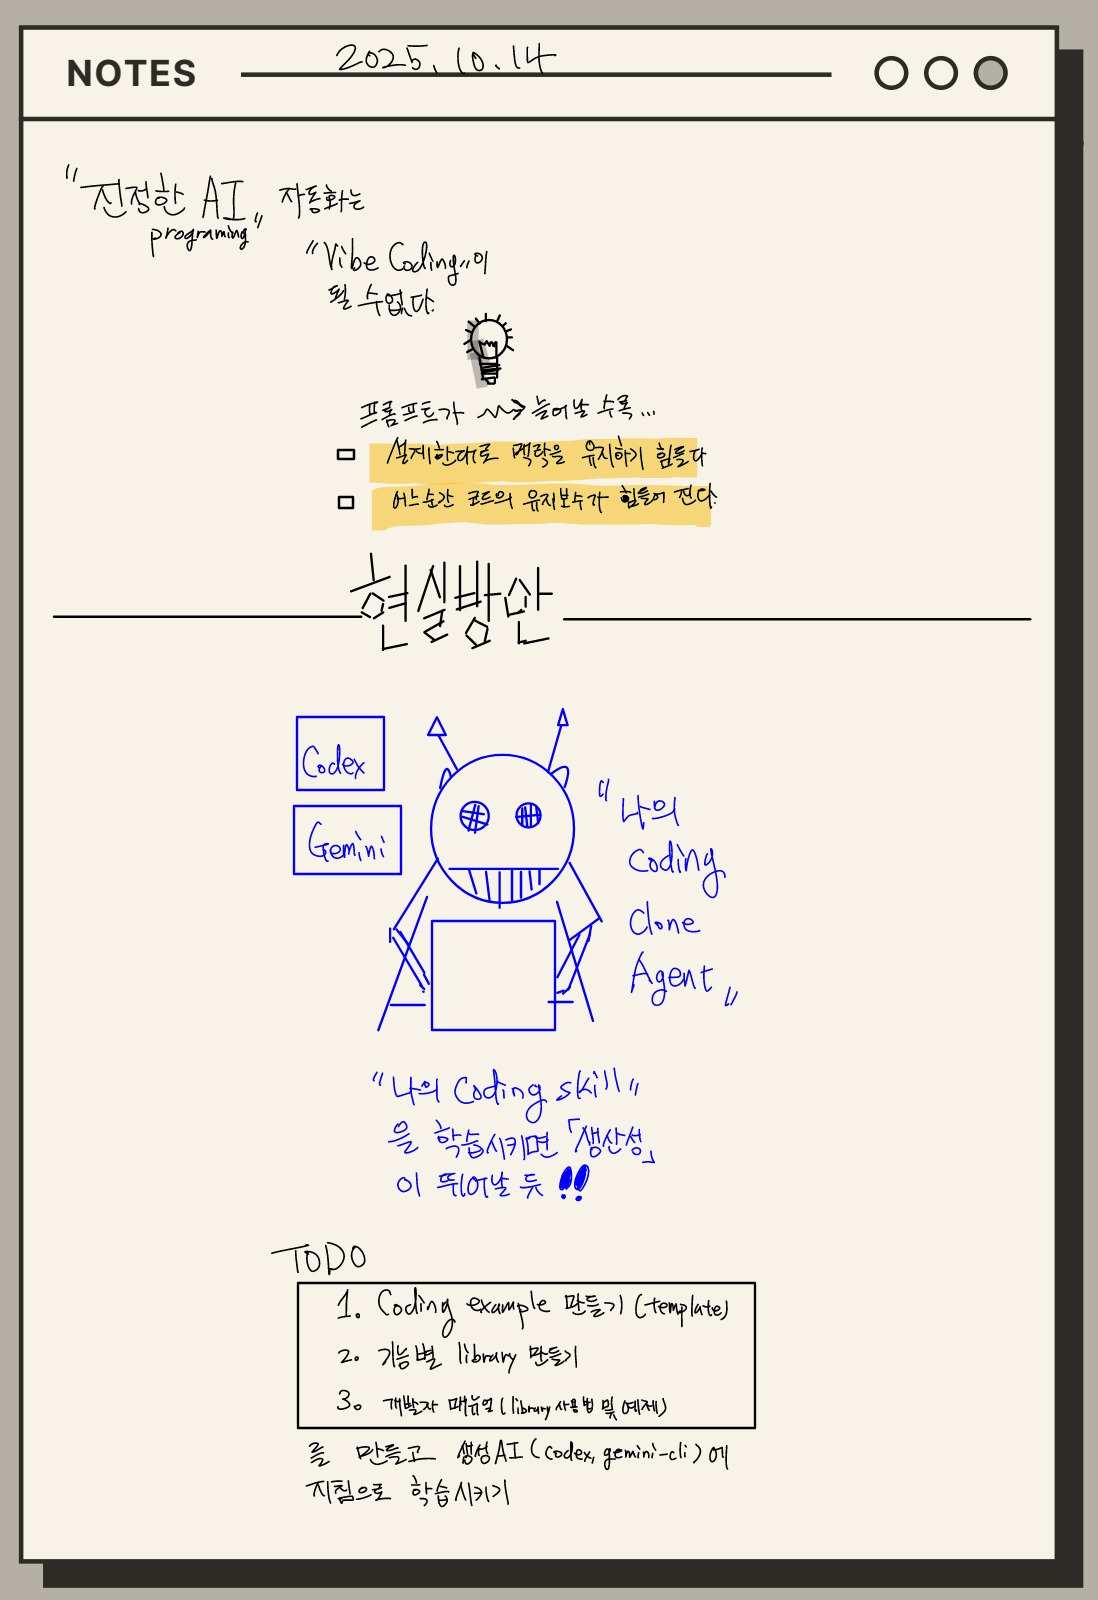 NOTES
2025. 10. 14
"진정한 AI
programing" 자동화는
"Vibe Coding"이
될 수 없다.
프롬프트가 늘어날 수록...
설계한대로 맥락을 유지하기 힘들다
어느순간 코드의 유지보수가 힘들어 진다.
현실방안
Codex
Gemini
"나의
Coding
Clone
Agent"
"나의 Coding skill"
을 학습시키면 「생산성」
이 뛰어날 듯 !!
TODO
1. Coding example 만들기 (template)
2. 기능별 library 만들기
3. 개발자 매뉴얼 (library 사용법 및 예제)
를 만들고 생성AI (codex, gemini-cli)에
지침으로 학습시키기